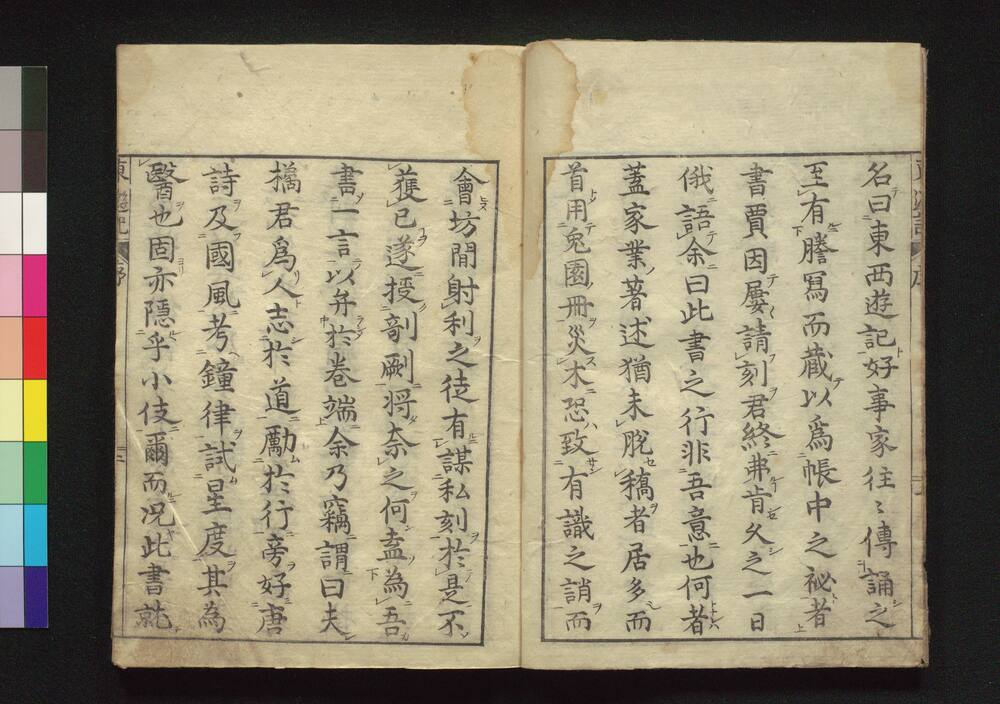 名曰東西遊記好事家往〻傳誦之
至有謄寫而藏以爲帳中之祕者
書賈因屢請刻君終弗肯久之一日
俄語余曰此書之行非吾意也何者
蓋家業著述猶未脫稿者居多而
首用兔園冊災木恐致有識之誚而
會坊閒射利之徒有謀私刻於是不
獲已遂授剞劂將奈之何盍為吾
書一言以弁於卷端余乃竊謂曰夫
橘君爲人志於道勵於行旁好唐
詩及國風考鐘律試星度其為
醫也固亦隱乎小伎爾而况此書就